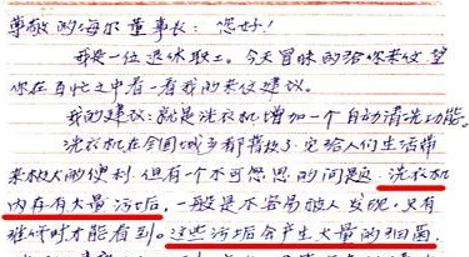 尊敬的海尔董事长：您好！
我是一位退休职工。今天冒昧的给你来信，望
你在百忙之中看一看我的来信建议。
我的建议：就是洗衣机增加一个自动清洗功能。
洗衣机在全国城乡都普及了，它给人们生活带
来极大的便利，但有一个不可忽思的问题，洗衣机
内存有大量污垢，一般是不容易被人发现，只有
维修时才能看到。这些污垢会产生大量的细菌，